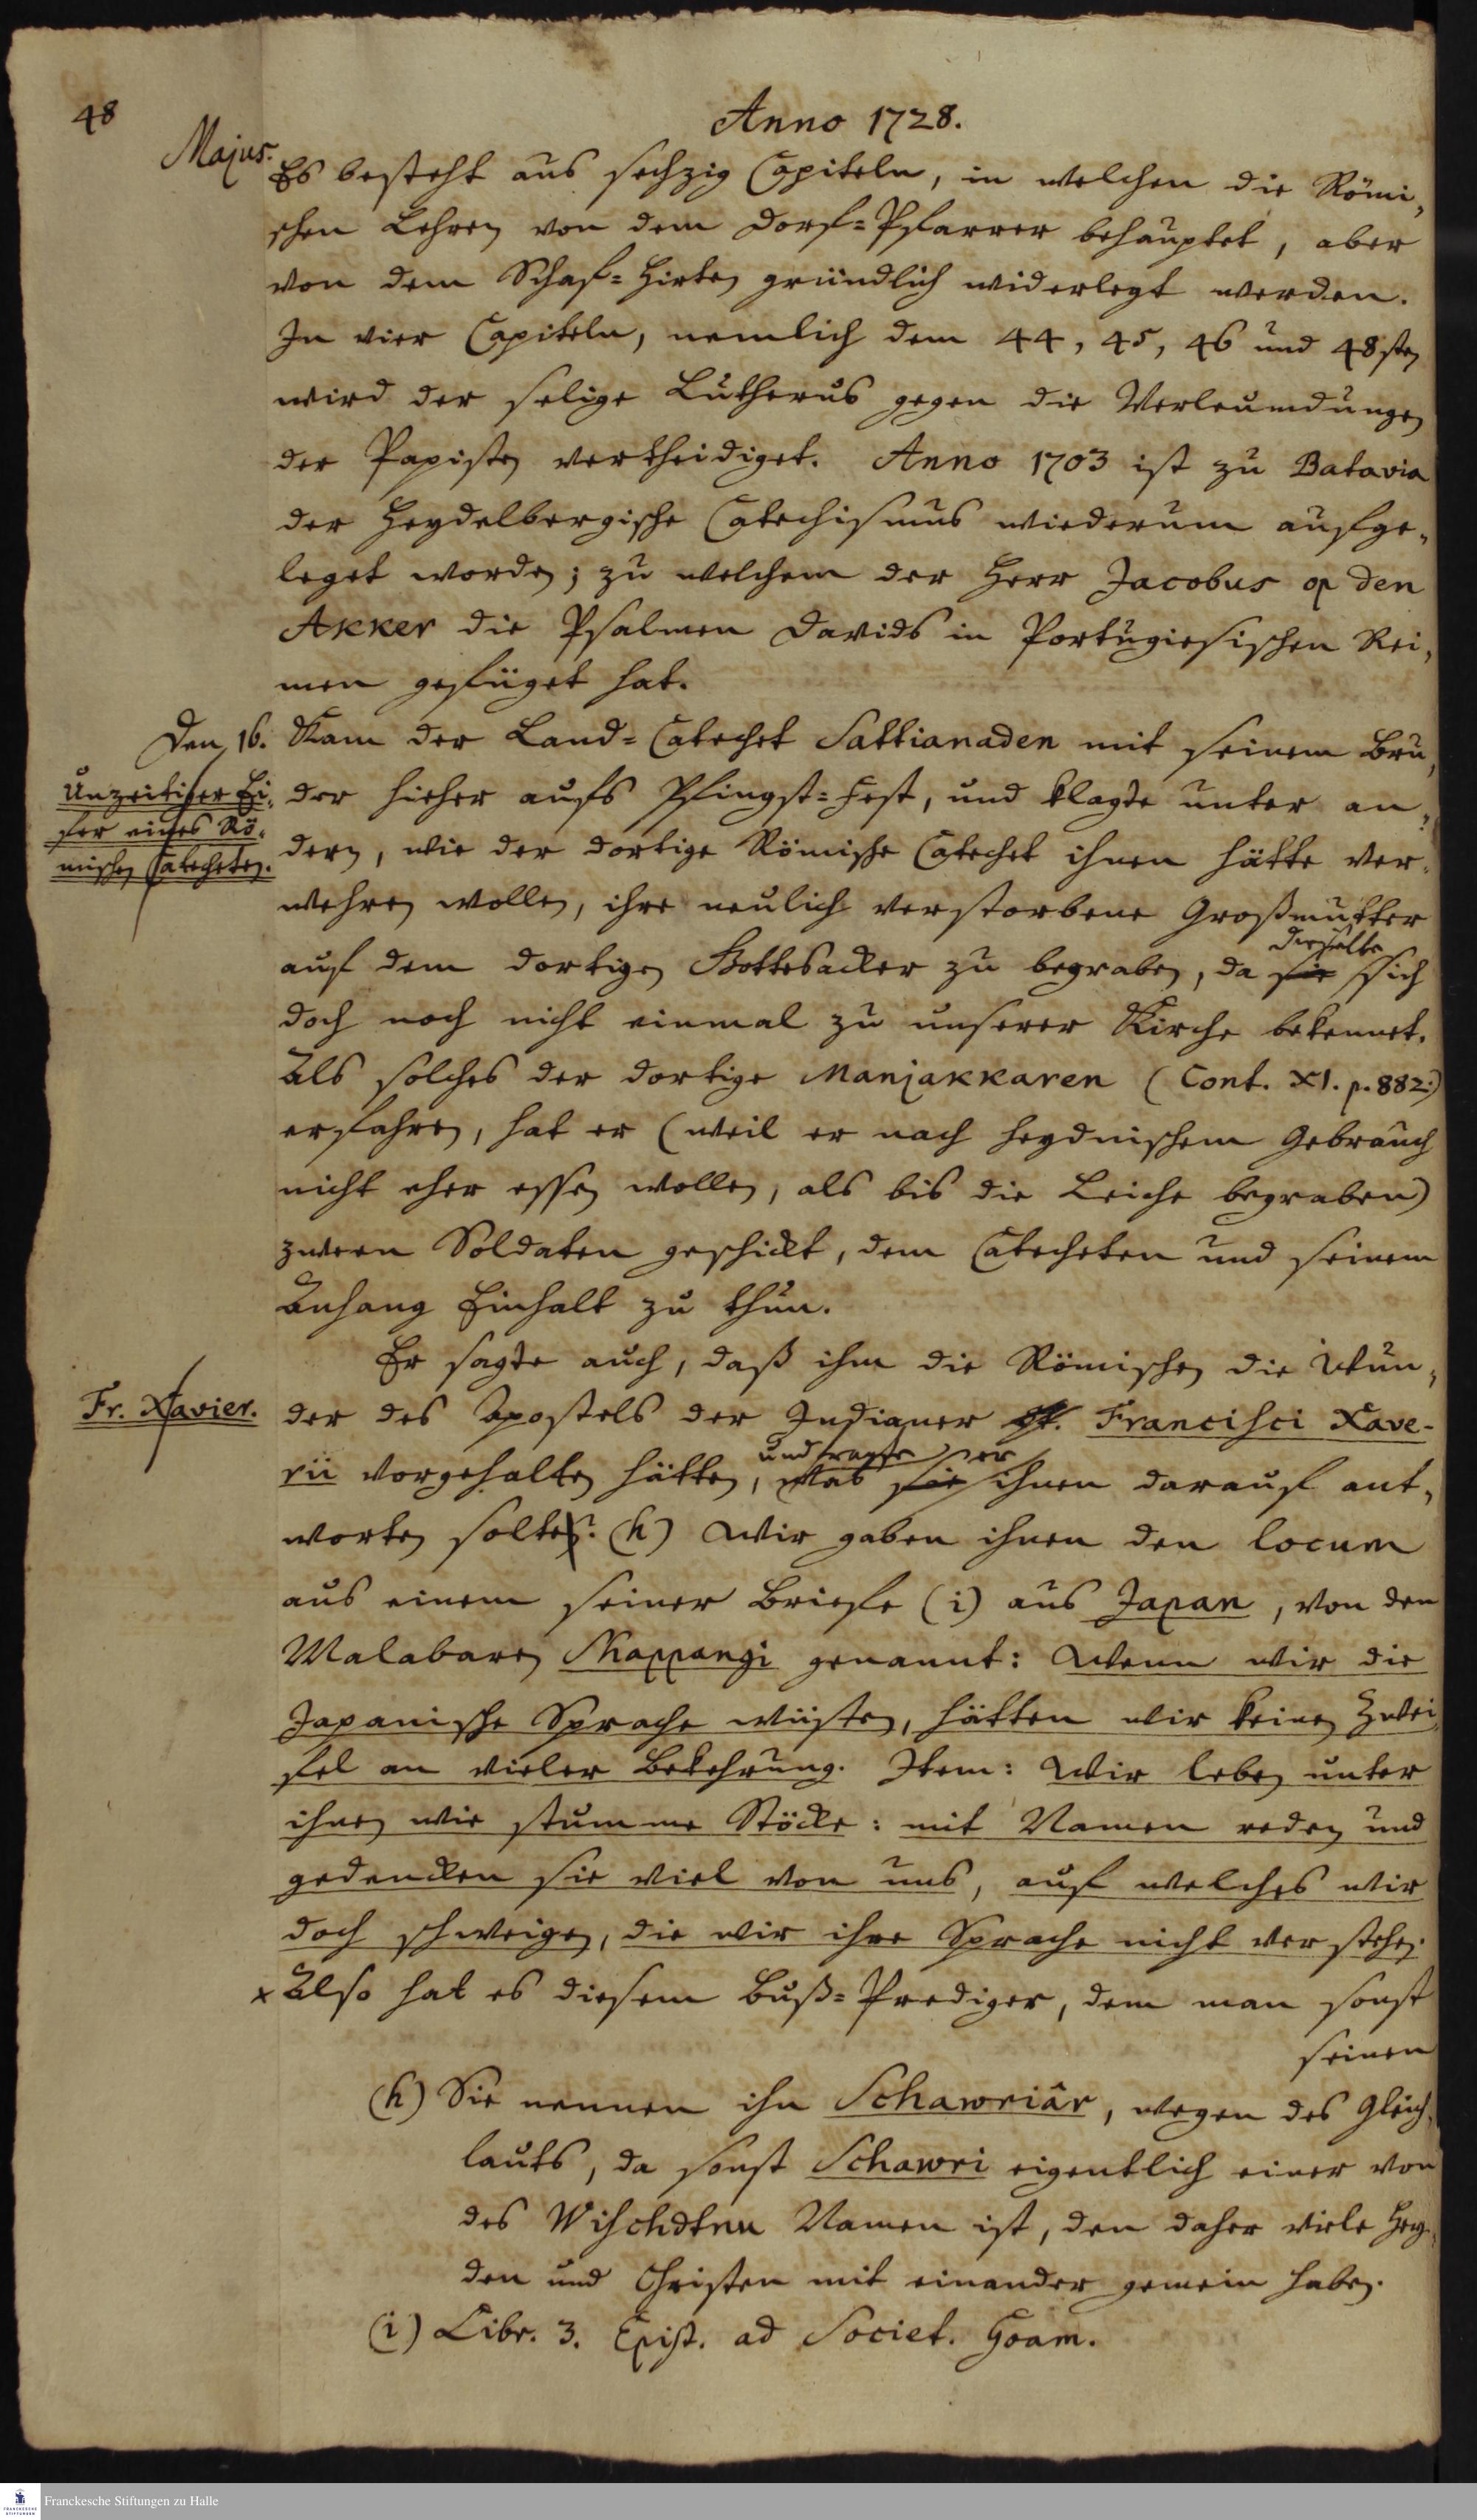 48
Anno 1728.
Majus.
Es besteht aus sechzig Capiteln, in welchen die Römi-
schen Lehren von dem Dorf-Pfarrer behauptet, aber
von dem Schaf-Hirten gründlich widerlegt werden.
In vier Capiteln, nemlich dem 44, 45, 46 und 48sten
wird der selige Lutherus gegen die Verleumdungen
der Papisten vertheidiget. Anno 1703 ist zu Batavia
der Heydelbergische Catechismus wiederum aufge-
leget worden; zu welchem der Herr Jacobus op den
Akker die Psalmen Davids in Portugiesischen Rei-
men gefüget hat.
Den 16. Kam der Land-Catechet Sattianaden mit seinem Bru-
Unzeitiger Ei-
fer eines Rö-
mischen Catecheten.
der hieher aufs Pfingst-Fest, und klagte unter an-
dern, wie der dortige Römische Catechet ihnen hätte ver-
wehren wollen, ihre neulich verstorbene Großmutter
auf dem dortigen Gottesacker zu begraben, da sie dieselbe sich
doch noch nicht einmal zu unserer Kirche bekennet.
Als solches der dortige Maniakkaren (Cont. XI. p. 882.)
erfahren, hat er (weil er nach heydnischem Gebrauch
nicht eher essen wollen, als bis die Leiche begraben)
zween Soldaten geschickt, dem Catecheten und seinem
Anhang Einhalt zu thun.
Er sagte auch, daß ihm die Römischen die Wun-
Fr. Xavier.
der des Apostels der Indianer St. Francisci Xave-
rii vorgehalten hätten, und fragte was sie er ihnen darauf ant-
worten solte? (h) Wir gaben ihnen den locum
aus einem seiner Briefe (i) aus Japan, von den
Malabaren Nappangi genannt: Wenn wir die
Japanische Sprache wüsten, hätten wir keinen Zwei-
fel an vieler Bekehrung. Item: Wir leben unter
ihnen wie stumme Stöcke: mit Namen reden und
gedencken sie viel von uns, auf welches wir
doch schweigen, die wir ihre Sprache nicht verstehen.
x Also hat es diesem Buß-Prediger, dem man sonst
seinen
(h) Sie nennen ihn Schawriâr, wegen des Gleich-
lauts, da sonst Schawri eigentlich einer von
des Wischdtnu Namen ist, den daher viele Hey-
den und Christen mit einander gemein haben.
(i) Libr. 3. Epist. ad Societ. Goam.
FRANCKESCHE STIFTUNGEN
Franckesche Stiftungen zu Halle